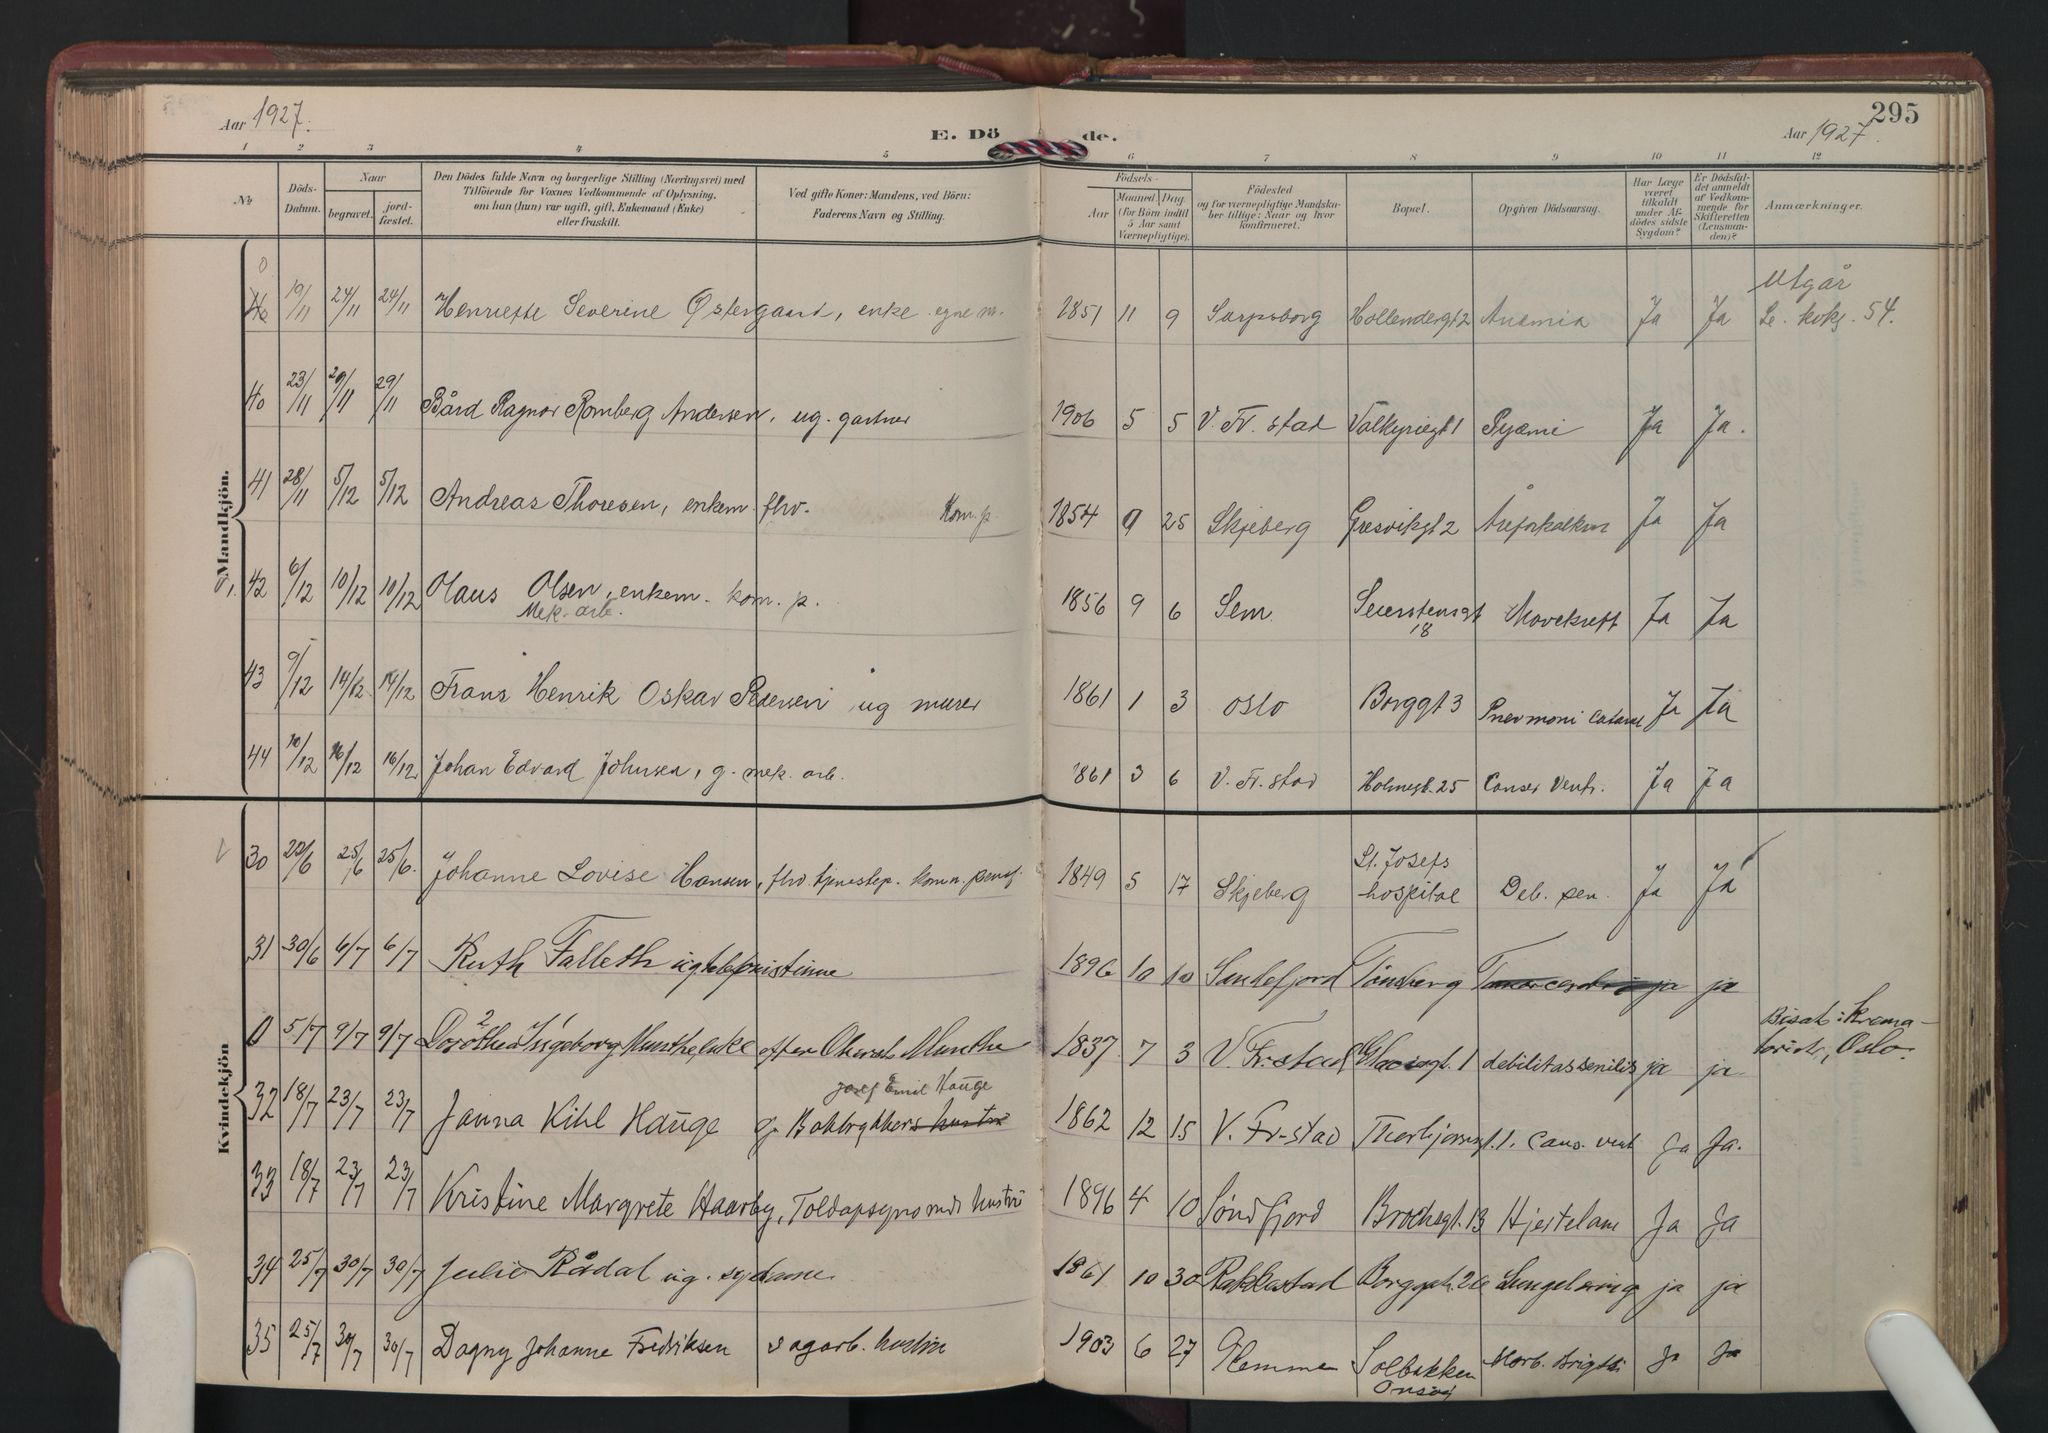 295
Aar 1927.
E. Dö de.
Aar 1927.
1 2 3 4 5 6 7 8 9 10 11 12
No
Döds-Datum.
Naar
begravet.
jordfæstet.
Den Dödes fulde Navn og borgerlige Stilling (Næringsvei) med
Tilföiende for Voxnes Vedkommende af Oplysning,
om han (hun) var ugift, gift, Enkemand (Enke)
eller fraskilt.
Ved gifte Koner: Mandens, ved Börn:
Faderens Navn og Stilling.
Födsels-
Aar
Maaned. Dag.
(for Börn indtil
5 Aar samt
Værnepligtige).
Födested
og for værnepligtige Mandskaber tillige: Naar og hvor
konfirmeret.
Bopæl.
Opgiven Dödsaarsag.
Har Læge
været
tilkaldt
under Afdödes sidste
Sygdom?
Er Dödsfaldet anmeldt
af Vedkommende for
Skifteretten
(Lensmanden)?
Anmærkninger.
Mandkjön.
0 19/11 24/11 24/11 Henriette Severine Østergaard, enke egne m. 1851 11 9 Sarpsborg Hollendergt 2 Anemia Ja Ja Utgår Se koks. 54.
40 23/11 29/11 29/11 Bård Ragnar Romberg Andersen, ug. gartner 1906 5 5 V. Fr. stad Valkyriegt 1 Pyæmi Ja Ja.
41 28/11 5/12 5/12 Andreas Thoresen, enkem. fhv. Kom. p. 1854 9 25 Skjeberg Gresvikgt 2 Åreforkalkn Ja Ja
42 6/12 10/12 10/12 Olaus Olsen, enkem. kom. p. 1856 9 6 Sem Seierstensgt 18 Mavekreft Ja Ja
Mek. arb.
43 9/12 14/12 14/12 Frans Henrik Oskar Pedersen ug murer 1861 1 3 Oslo Borggt 3 Pnevmoni Ja Ja
44 10/12 16/12 16/12 Johan Edvard Johnsen, g. mek. arb. 1861 3 6 V. Fr. stad Holmegt. 25 Cancer Ventr. Ja Ja
Kvindekjön
30 20/6 25/6 25/6. Johanne Lovise Hansen, fhv. tjenestep. kom. pensj 1849 5 17 Skjeberg St. Josefs hospital Deb. sen. Ja Ja
31 30/6 6/7 6/7 Ruth Falleth ug telefonistinne 1896 10 10 Sandefjord Tönsberg ja ja
0 5/7 9/7 9/7 Dorothea Ingeborg Munthe enke efter Oberst Munthe 1837 7 3 V. Fr. stad Glacisgt. 1 debilitas senilis ja ja Bisat: Krematoriet, Oslo.
32 18/7 23/7 23/7 Janna Kihl Hauge g. Boktrykkers hustru 1862 12 15 V. Fr-stad Thorbjørnsgt. 1. Canc. vent Ja Ja.
Josef Emil Hauge
33 18/7 23/7 23/7 Kristine Margrete Haarby, Toldopsynsmds hustru 1896 4 10 Søndfjord Brochsgt. 13 Hjertelam Ja Ja
34 25/7 30/7 30/7 Julie Rådal ug. sydame 1861 10 30 Rakkestad Borggt. 26 ja ja
35 25/7 30/7 30/7 Dagny Johanne Fredriksen sagarb. hustru 1903 6 27 Glemmen Solbakken Onsøy Morb. Brigtii Ja Ja